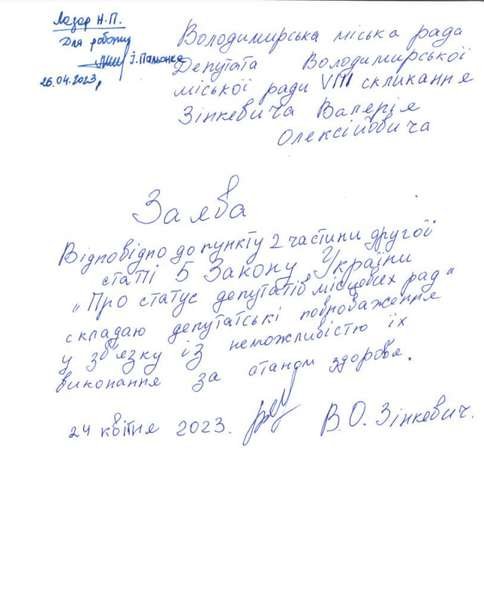 Лазар Н.П.
Для роботи
І. Пальонка
26.04.2023р
Володимирська міська рада
Депутата Володимирської
міської ради VIII скликання
Зінкевича Валерія
Олексійовича
Заява
Відповідно до пункту 2 частини другої
статті 5 Закону України
„Про статус депутатів місцевих рад"
складаю депутатські повноваження
у зв'язку із неможливістю їх
виконання за станом здоров'я.
24 квітня 2023. В.О. Зінкевич.